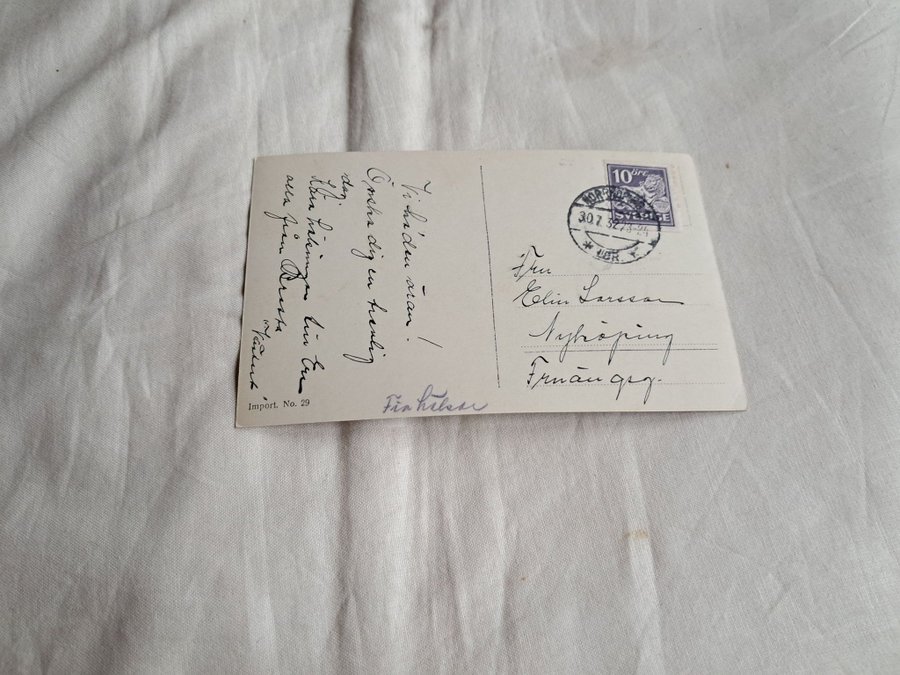 Vi ha den äran!
Önska dig en trevlig
dag.
Kära hälsningar till Er
alla från
Fia hälsar
Import. No. 29
10 öre
SVERIGE
30.7.32
Fru
Elin Larsson
Nyköping